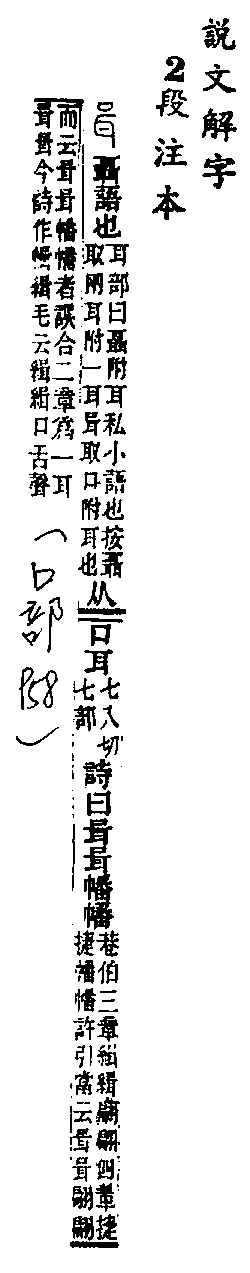 説文解字
2段注本
咠
聶語也
耳部曰聶附耳私小語也按聶
取兩耳附一耳咠取口附耳也
从口耳
七入切
七部
詩曰咠咠幡幡
巷伯三章緝緝翩翩四章捷
捷幡幡許引當云咠咠翩翩
而云咠咠幡幡者誤合二章爲一耳
咠咠今詩作緝緝毛云緝緝口舌聲
(口部 P58)